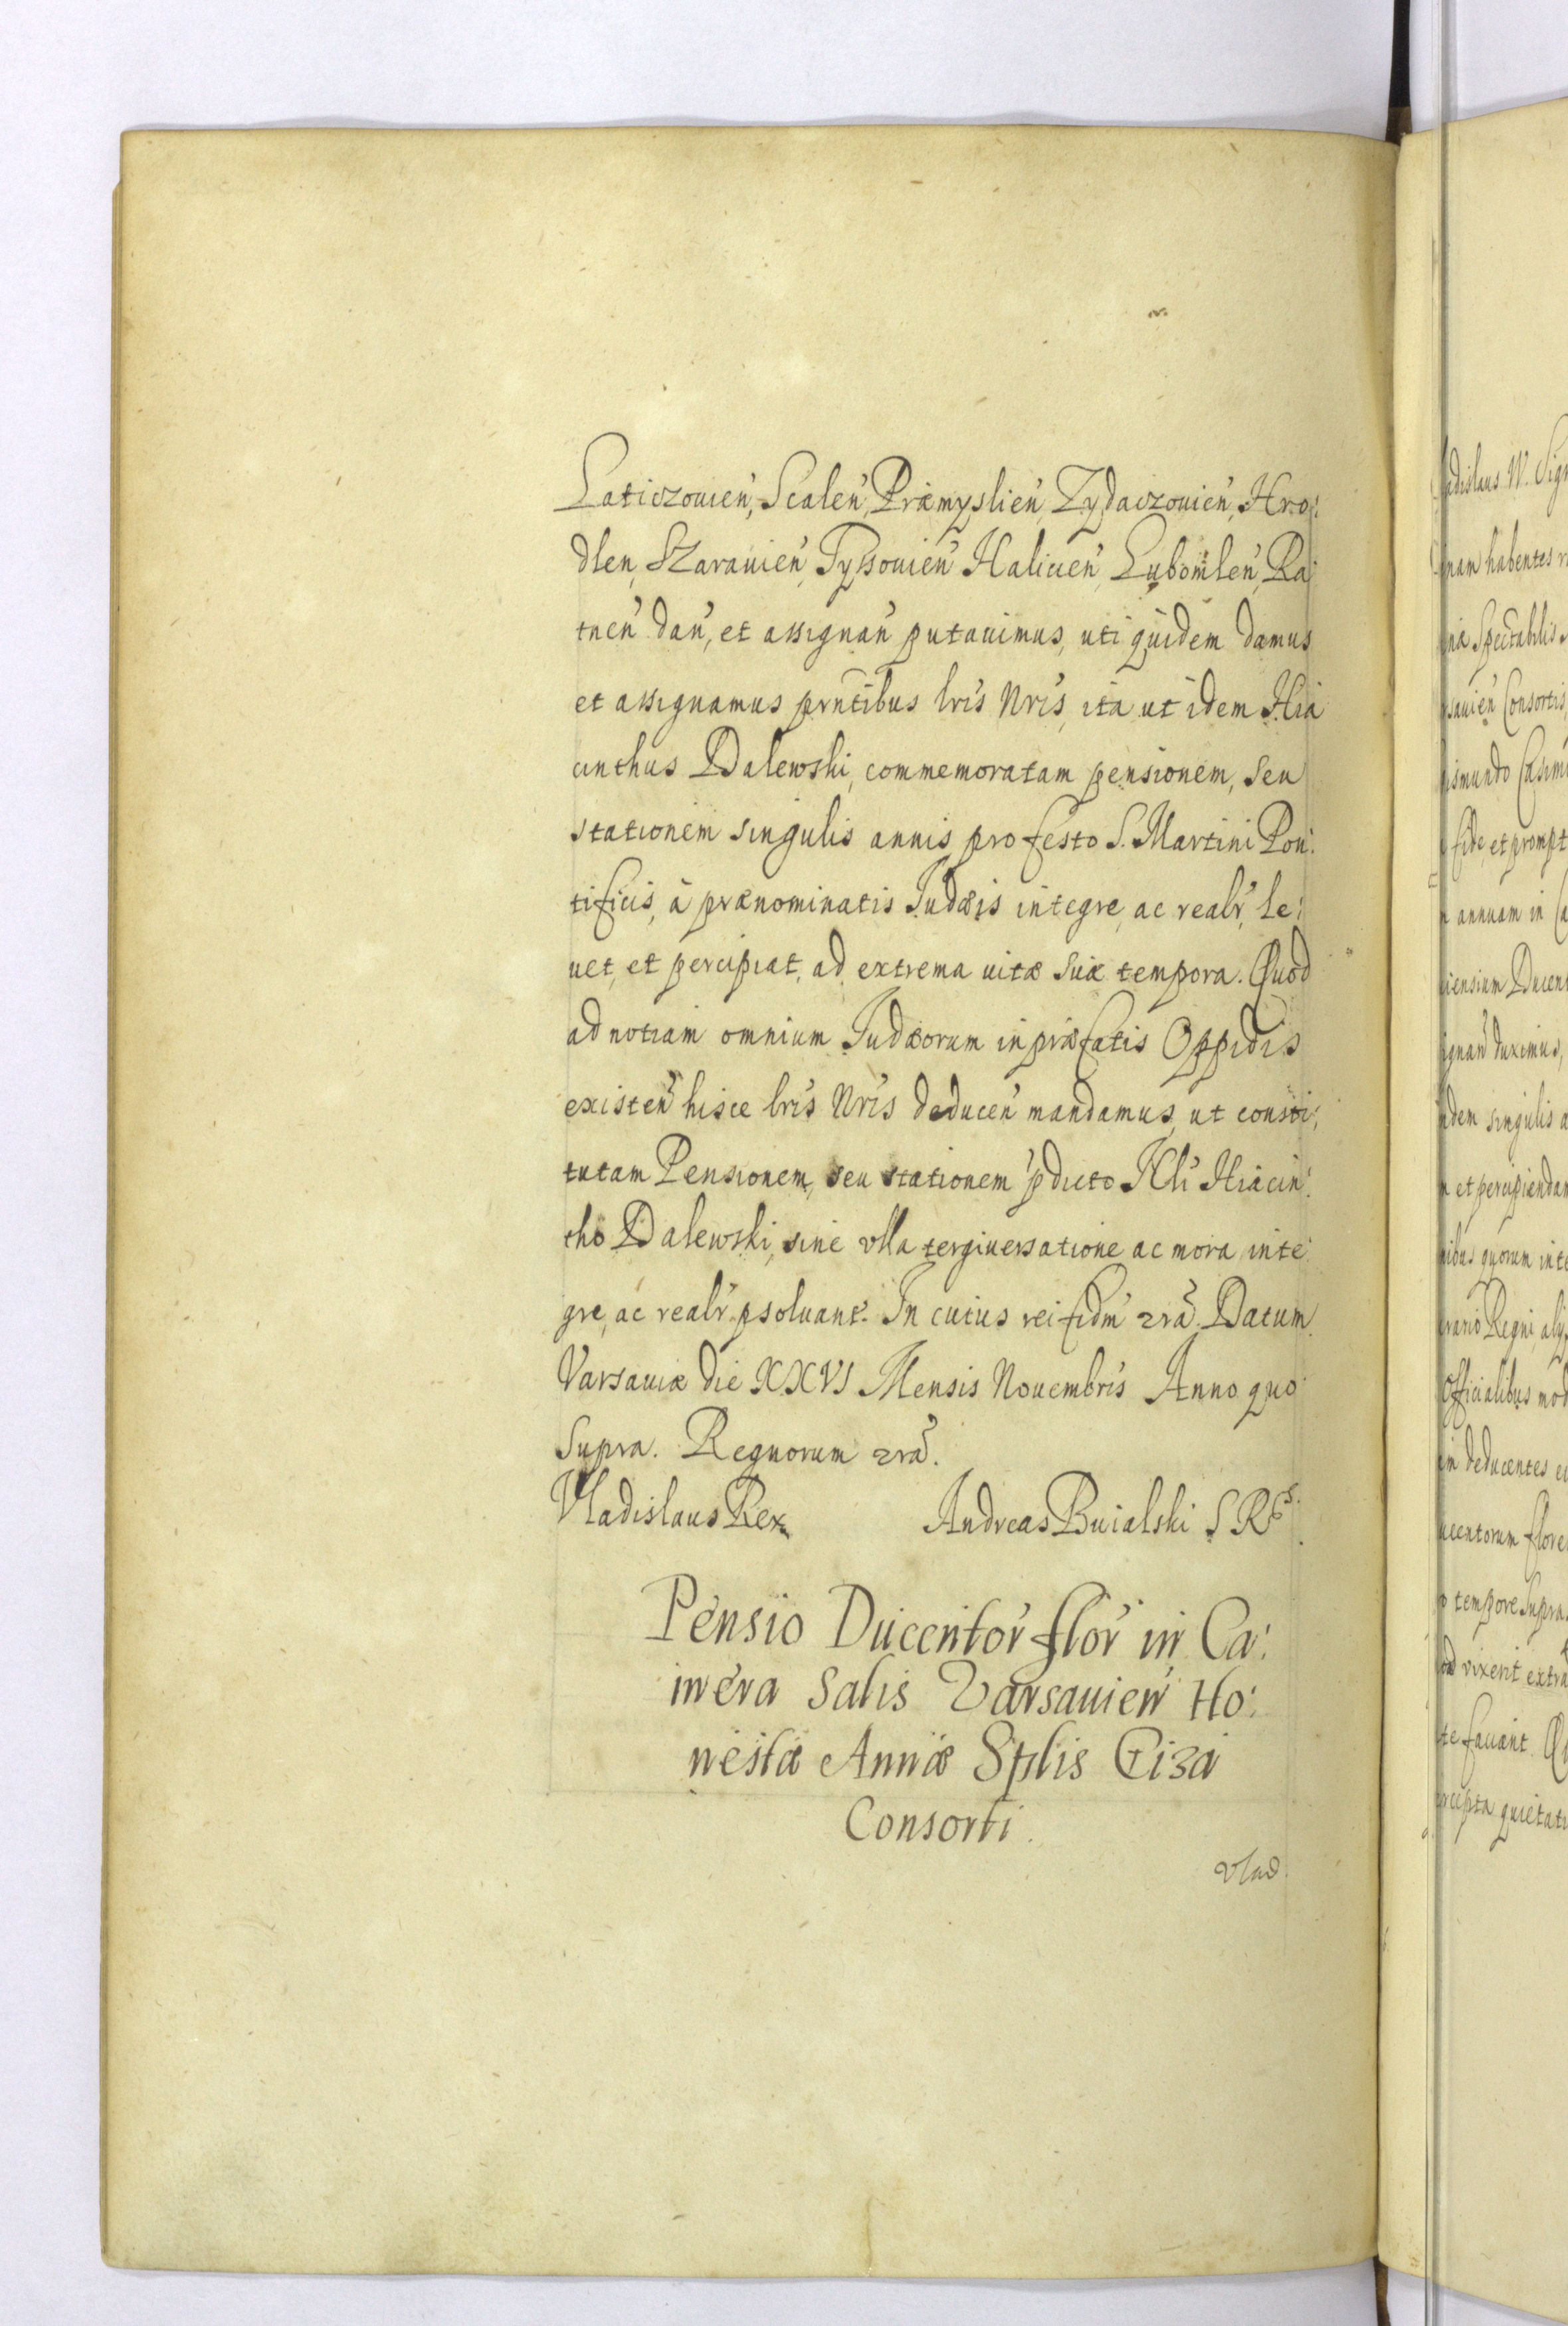 Laticzouień, Scaleń, Præmyslień, Zydaczouień, Hro:
dlen, Szarauień, Tyssouień Halicień, Lubomleń, Ra
tneń dań, et assignań putauimus, uti quidem damus
et assignamus prntibus lris Nris, ita ut idem Hia
cinthus Dalewski, commemoratam pensionem, seu
stationem singulis annis pro festo S. Martini Pon:
tificis, à prænominatis Iudæis integre, ac realr, le:
uet, et percipiat, ad extrema uitæ suæ tempora. Quod
ad notiam omnium Iudæorum in præfatis Oppidis
existeń hisce lris Nris deduceń mandamus, ut consti:
tutam Pensionem, seu stationem pdicto Hiacin:
tho Dalewski, sine vlla tergiuersatione ac mora inte:
gre, ac realr psoluant. In cuius rei fidm zra. Datum
Varsauiæ die XXVI Mensis Nouembris Anno quo
supra. Regnorum zra.
Vladislaus Rex Andreas Buialski S R
Pensio Ducentor flor in Ca:
mera Salis Varsauień Ho:
nestæ Annæ Splis Giza
Consorti.
Vlad
adislaus IV. Sig
nam habentes
Spectabilis
sauień Consortis
ismundo Casimi
fide, et prompt
annuam in Ca
iensium Ducen
ignań duximus,
dem singulis a
et percipiendam
ibus quorum inte
rario Regni, alij
Officialibus mod
deducentes ei
ucentorum flore
tempore supra
vixerit extra
te faciant. Q
cepta quietati